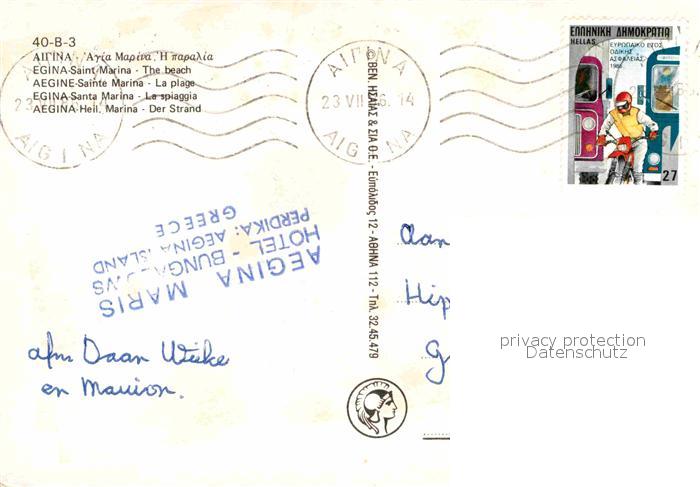 40-B-3
ΑΙΓΙΝΑ - Ἁγία Μαρίνα, Ἡ παραλία
EGINA-Saint Marina - The beach
AEGINE-Sainte Marina - La plage
EGINA-Santa Marina - La spiaggia
AEGINA-Heil. Marina - Der Strand
ΑΙΓΙΝΑ
ΑΙΓΙΝΑ
23 VII 14
AIGINA
AIGINA
ΕΛΛΗΝΙΚΗ ΔΗΜΟΚΡΑΤΙΑ
HELLAS
ΕΥΡΩΠΑΪΚΟ ΕΤΟΣ
ΟΔΙΚΗΣ
ΑΣΦΑΛΕΙΑΣ
1986
27
© ΒΕΝ. ΗΣΑΪΑΣ & ΣΙΑ Ο.Ε. - Εὐπόλιδος 12 - ΑΘΗΝΑ 112 - Τηλ. 32.45.479
AEGINA MARIS
HOTEL - BUNGALOWS
PERDIKA: AEGINA ISLAND
GREECE
Aan
Hip
G
afm Daan
en
privacy protection
Datenschutz